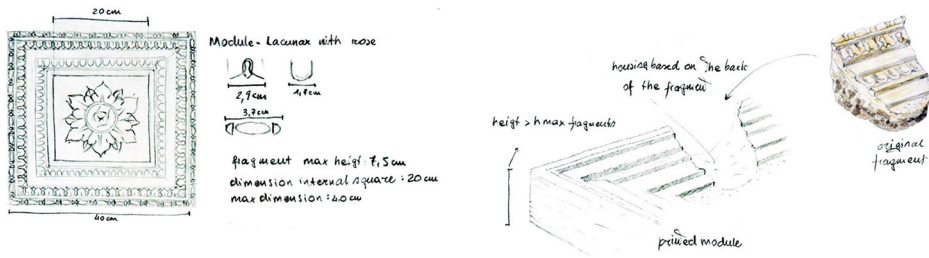 20cm
40cm
Module - Lacunar with rose
2,9cm
1,9cm
3,7cm
fragment max heigt: 7,5cm
dimension internal square: 20cm
max dimension: 40cm
heigt > h max fragments
housing based on the back
of the fragment
printed module
original
fragment